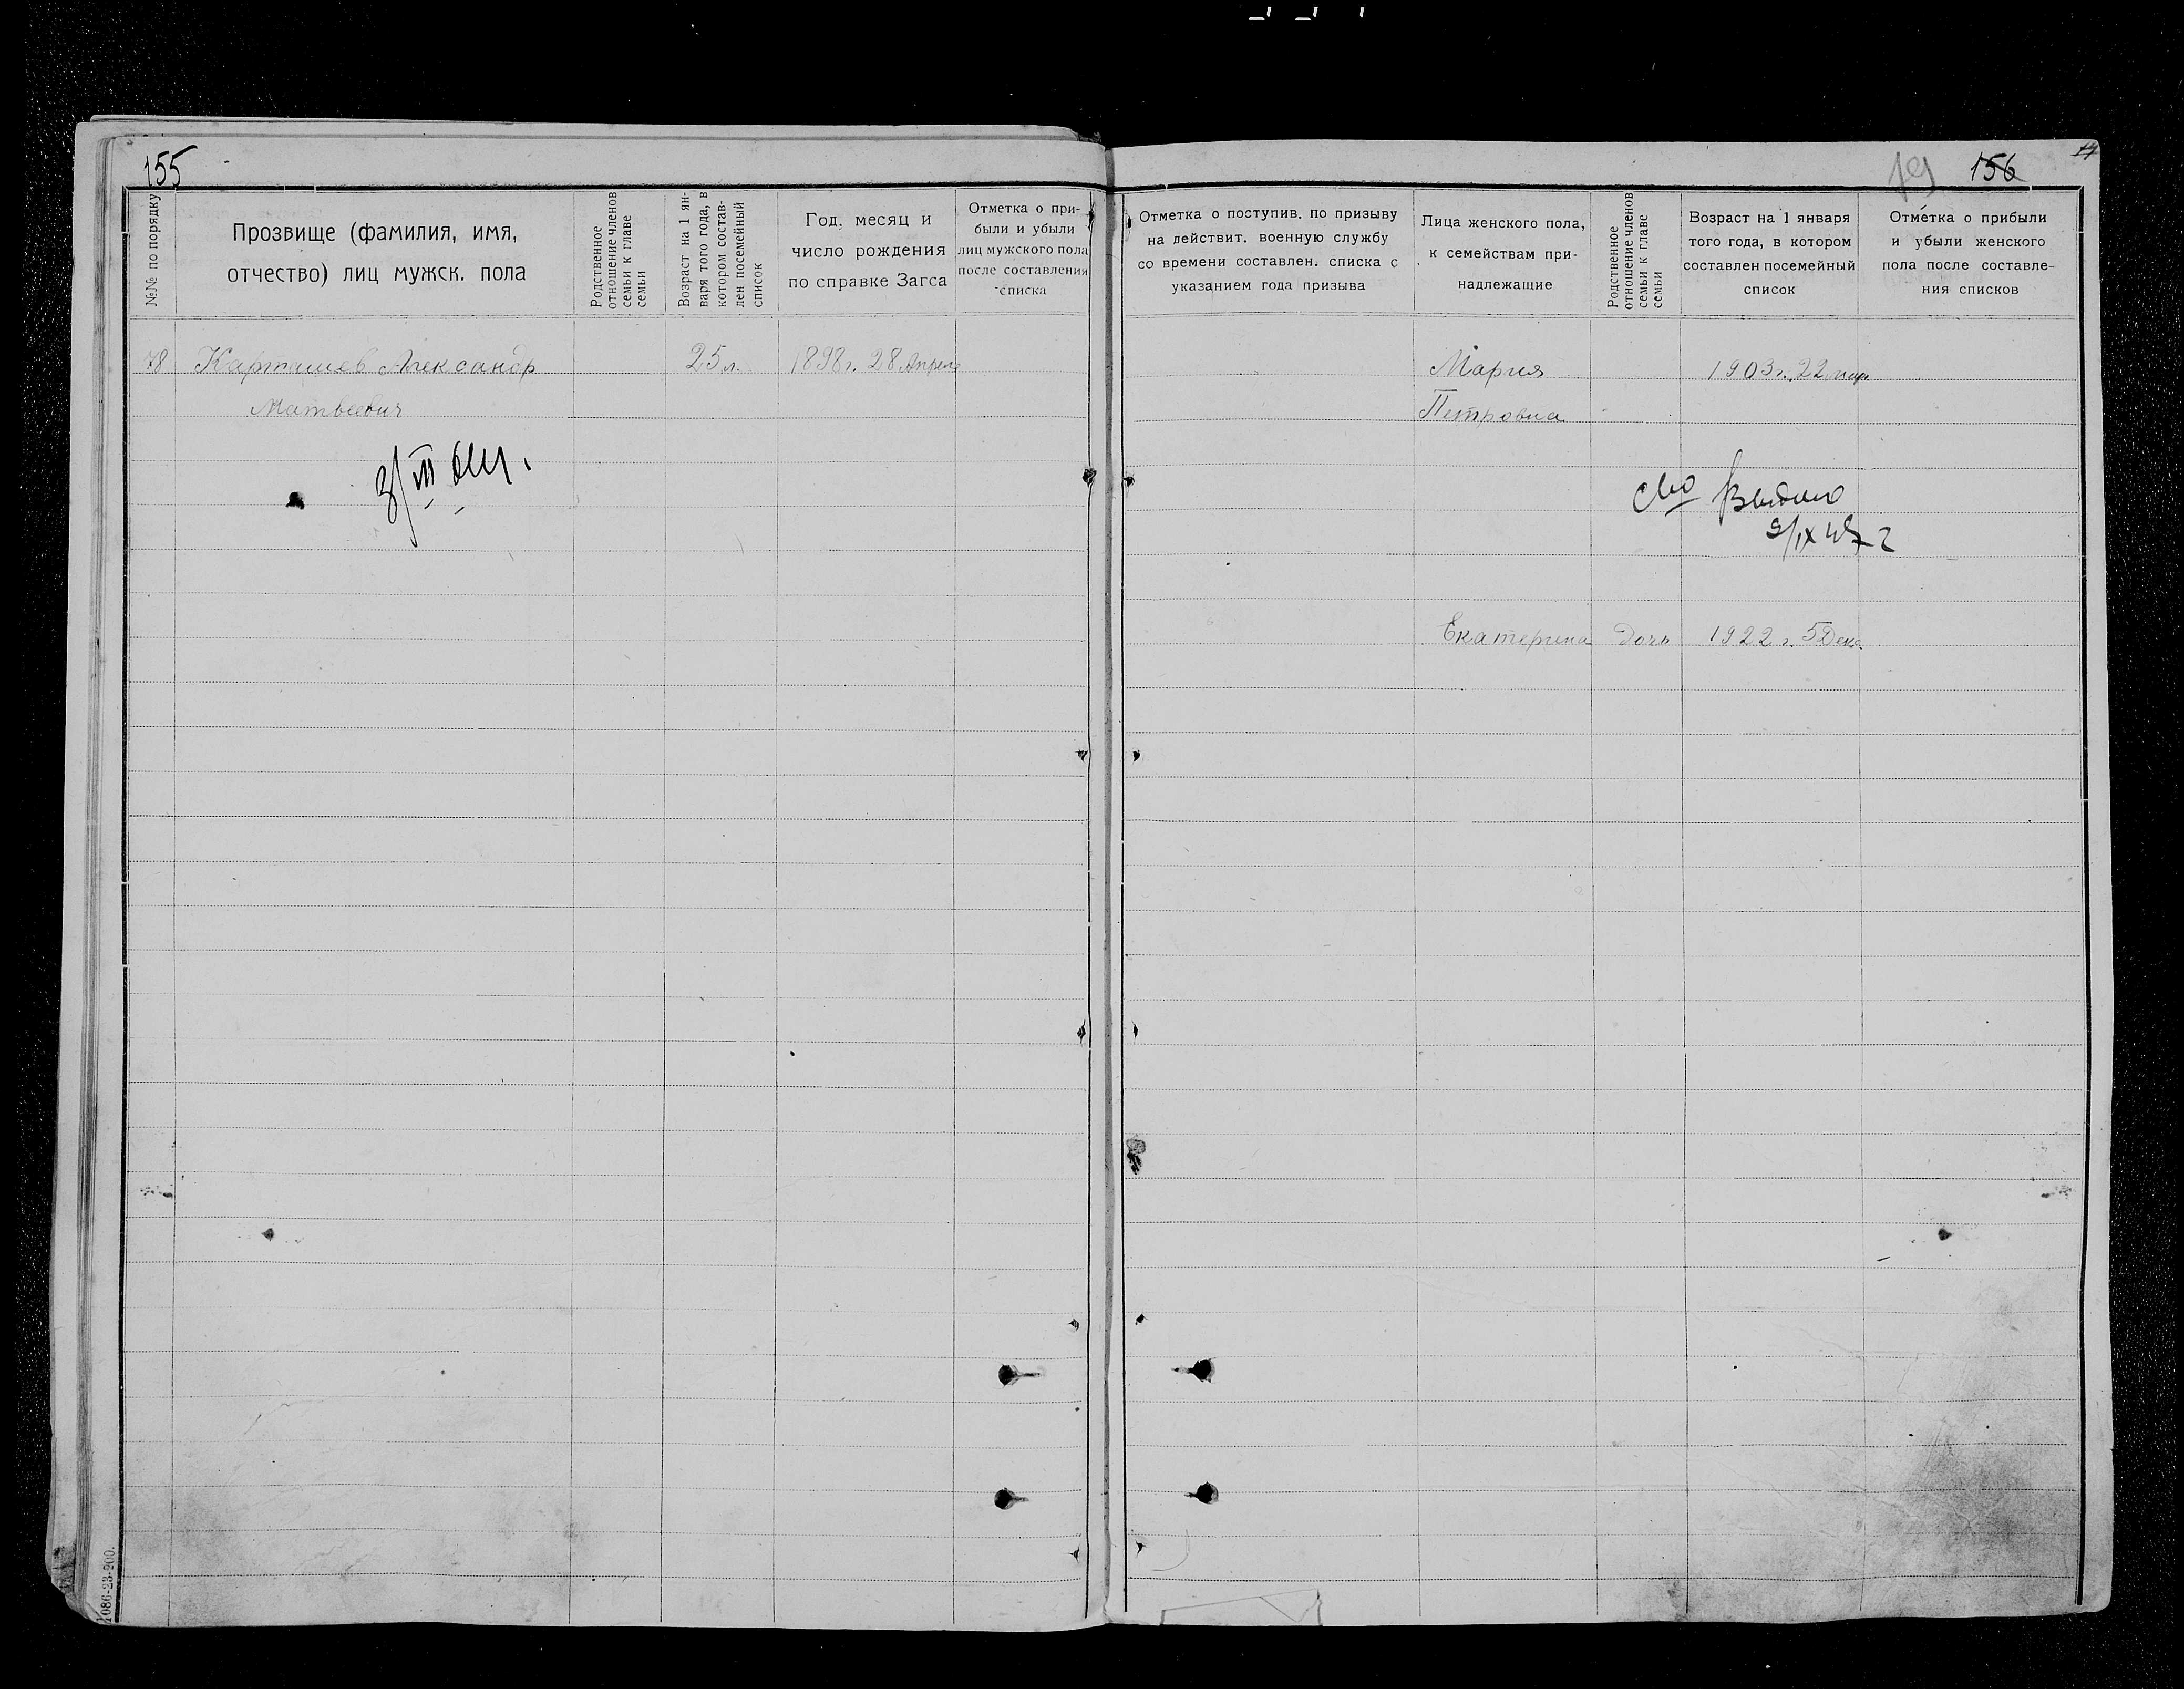 155
№№ по порядку
Прозвище (фамилия, имя,
отчество) лиц мужск. пола
Родственное
отношение членов
семьи к главе
семьи
Возраст на 1 ян-
варя того года, в
котором состав-
лен посемейный
список
Год, месяц и
число рождения
по справке Загса
Отметка о при-
были и убыли
лиц мужского пола
после составления
списка
78 Карташев Александр 25 л. 1898 г. 28 Апрел
Матвеевич
3/VII
086-23-200.
19 156
Отметка о поступив. по призыву
на действит. военную службу
со времени составлен. списка с
указанием года призыва
Лица женского пола,
к семействам при-
надлежащие
Родственное
отношение членов
семьи к главе
семьи
Возраст на 1 января
того года, в котором
составлен посемейный
список
Отметка о прибыли
и убыли женского
пола после составле-
ния списков
Мария 1903 г. 22 мар.
Петровна
Выдано
Екатерина дочь 1922 г. 5 Дек.